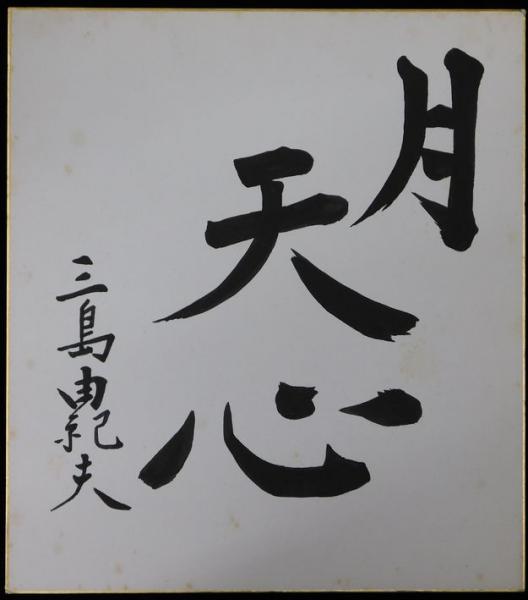 月
天
心
三島由紀夫